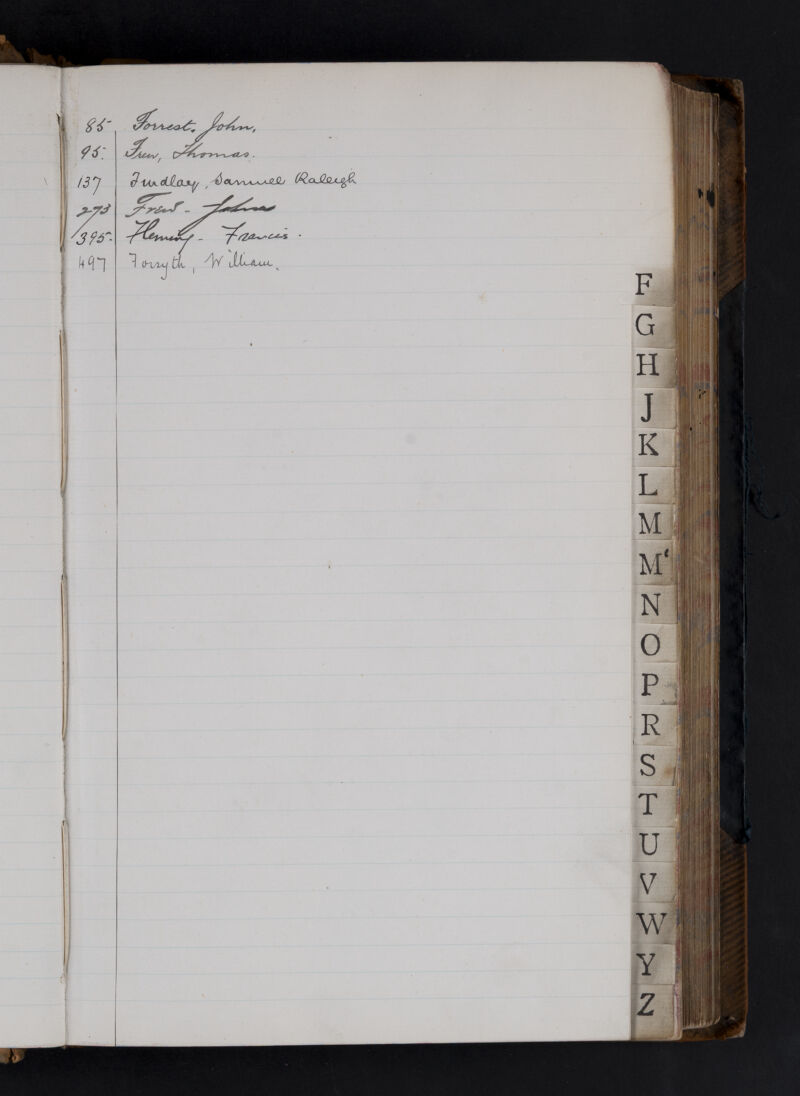 85 Forrest. John.
95. Frew, Thomas.
137 Findlay, Samuel Raleigh
273 Frew - John
395. Fleming - Francis.
497 Forsyth, William.
F
G
H
J
K
L
M
M‘
N
O
P
R
S
T
U
V
W
Y
Z